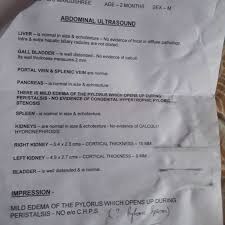 AGE - 2 MONTHS SEX - M
ABDOMINAL ULTRASOUND
LIVER - is normal in size & echotexture - No evidence of focal or diffuse pathology
Intra & extra hepatic biliary radicles are not dilated.
GALL BLADDER - is well distended - No evidence of calculi
Its wall thickness measures 2 mm
PORTAL VEIN & SPLENIC VEIN are normal.
PANCREAS - is normal in size & echotexture
THERE IS MILD EDEMA OF THE PYLORUS WHICH OPENS UP DURING
PERISTALSIS - NO EVIDENCE OF CONGENITAL HYPERTROPHIC PYLORIC
STENOSIS
SPLEEN - is normal in size & echotexture
KIDNEYS - are normal in size & echotexture - No evidence of CALCULI
HYDRONEPHROSIS
RIGHT KIDNEY - 5.4 x 2.5 cms - CORTICAL THICKNESS - MM
LEFT KIDNEY - 4.9 x 2.7 cms - CORTICAL THICKNESS - MM
BLADDER - is well distended & is normal.
IMPRESSION -
MILD EDEMA OF THE PYLORUS WHICH OPENS UP DURING
PERISTALSIS - NO e/o C.H.P.S.